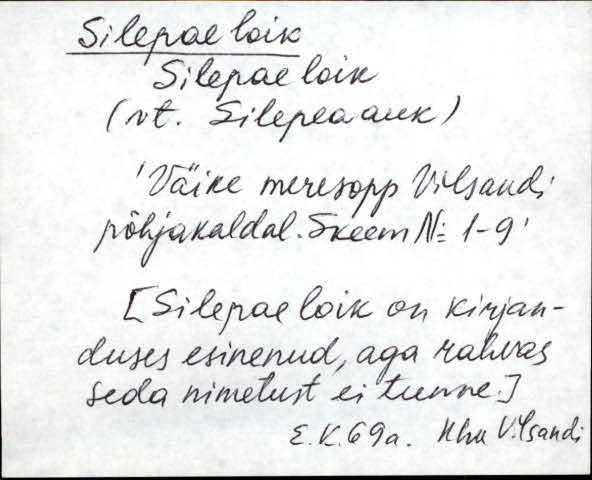 Silepae loik
Silepae loik
(vt. Silepea auk)
'Väike meresopp Vilsandi
põhjakaldal. Skeem № 1-9'
[Silepae loik on kirjan-
duses esinenud, aga rahvas
seda nimetust ei tunne.]
E.K. 69a. Khn Vilsandi